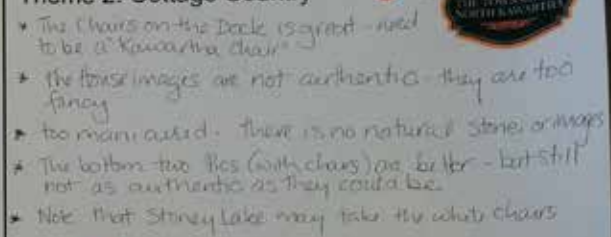 Theme 2: Cottage Country
NORTH KAWARTHA
* The Chairs on the Dock is great - need
to be a "Kawartha chair"
* The house images are not authentic - they are too
fancy
* too manicured. There is no natural stone, or images
* The bottom two Pics (with chairs) are better - but still
not as authentic as they could be.
* Note that Stoney Lake may take the white chairs